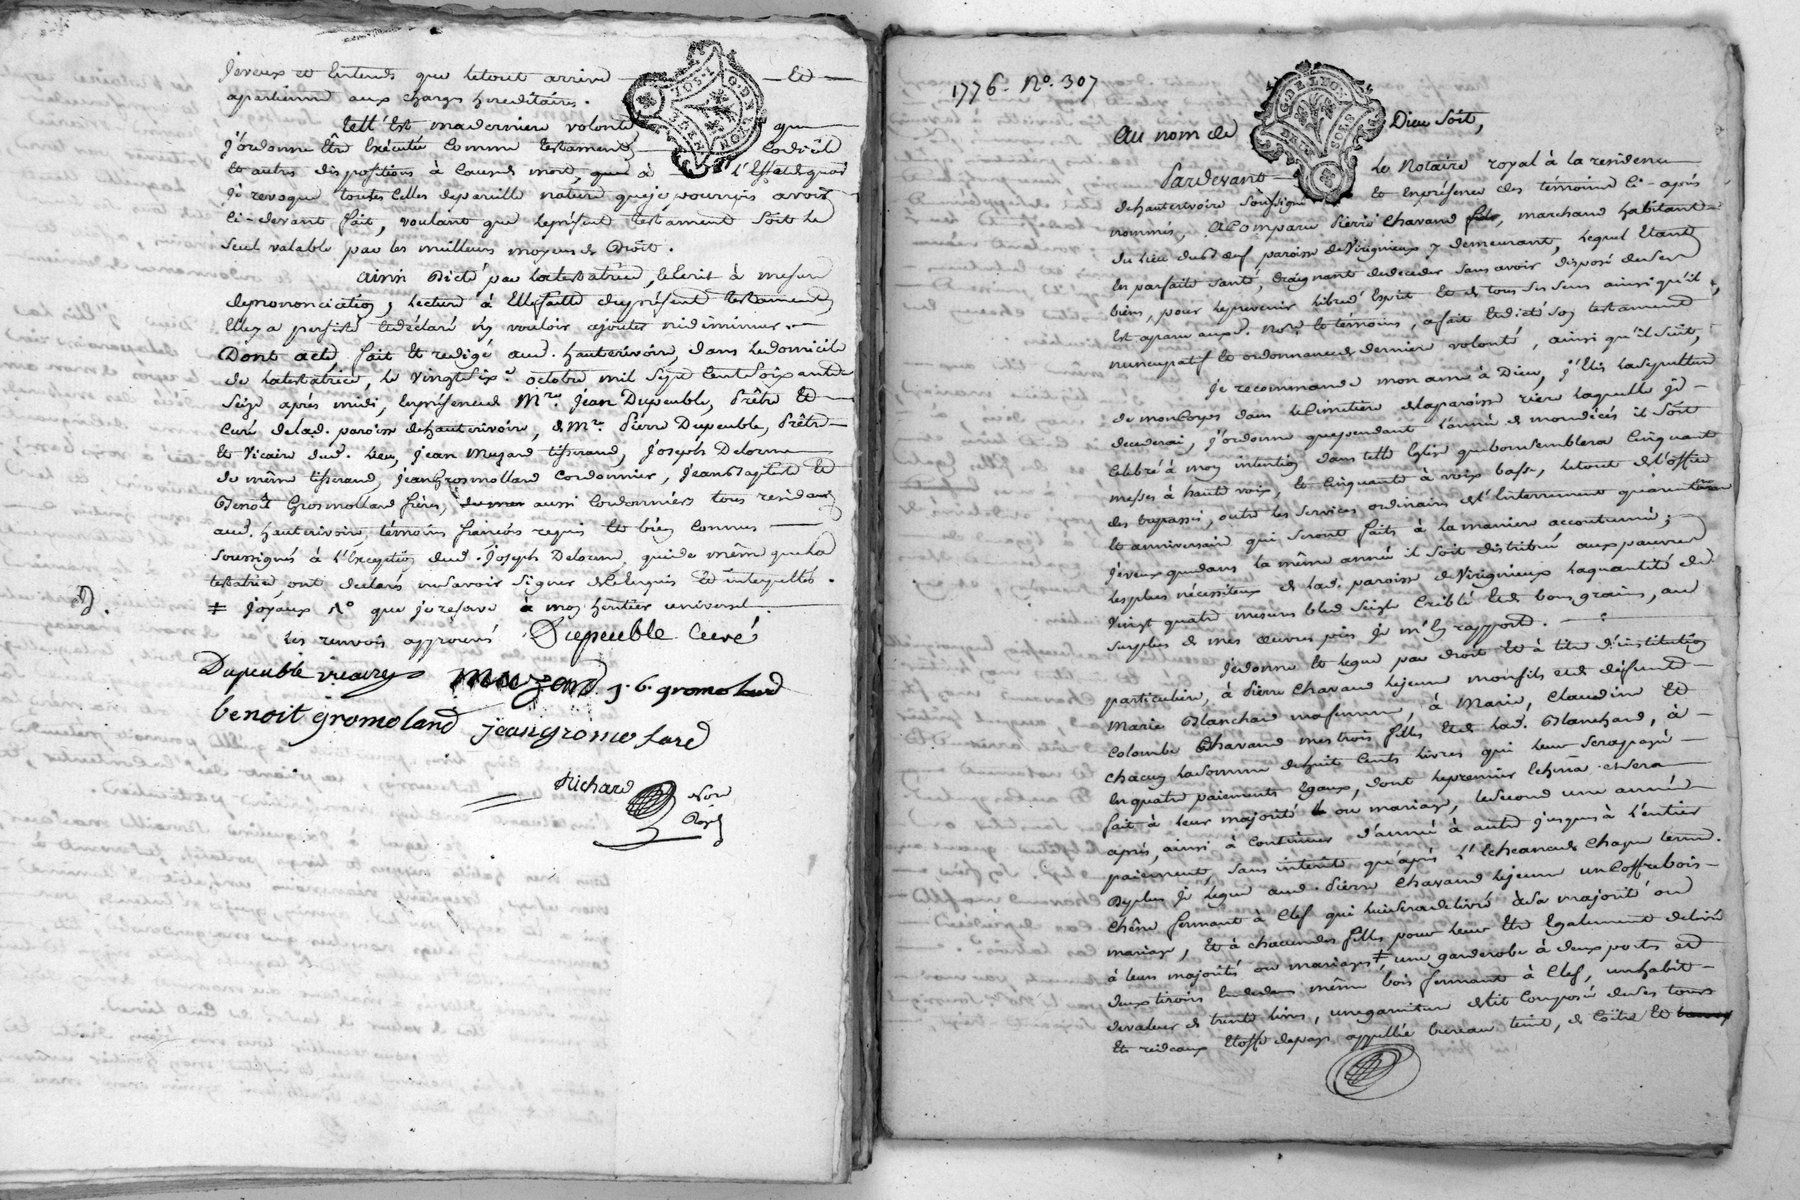 Jeveux et Entends que letout arrive Et
apartienne aux charges hereditaires.
telle Est maderniere volonté que
j'ordonne Etre Executée comme testament codicile
et autres dispositions à Cause de mort, que à l'Effet dequoi
je revoque toutes Celles depareille nature queje pourrois avoir
Ci-devant fait, voulant que leprésent testament Soit le
Seul valable par les meilleurs moyens de Droit.
ainsi Dicté par latestatrice, Ecrit à mesure
deprononciation, lecture à Elle faitte duprésent testament
Elle y a persisté Et déclaré n'y vouloir ajouter ni diminuer.
Dont acte, fait Et redigé aud. hauterivoire, dans ledomicile
de latestatrice, le vingt Six.e octobre mil Sept Cent Soixante
Seize après midi, Enprésence de M.re Jean Dupeuble, Prêtre Et
Curé de lad. paroisse dehauterivoire, de M.re Pierre Dupeuble, Prêtre
Et Vicaire dud. lieu, Jean Muzard tisserand, Joseph Delorme
de même tisserand, Jean Grosmollard Cordonnier, Jean Baptiste Et
Benoit Grosmollard frères, aussi Cordonniers tous residans
aud. hauterivoire, témoins français requis Et bien Connus
Soussignés à l'Exception dud. Joseph Delorme, qui de même que la
testatrice, ont declaré ne Savoir Signer de Ce Enquis Et interpellés.
‡ joyaux que je reserve à mon héritier universel.
les renvois approuvés Dupeuble Curé
Dupeuble vicaire muzard j. b. gromolard
benoit gromolard jean gromolard
Richard Not.re Royal
1776. N.o 307
Au nom de Dieu Soit,
Pardevant le Notaire royal à la residence
dehauterivoire Soussigné Et Enprésence des témoins Ci-après
nommés, a Comparu Pierre Chavand fils, marchand habitant
du lieu du paroisse de Virignieux y demeurant, lequel Etant
En parfaite Santé, Craignant dedecéder Sans avoir disposé deses
biens, pour leprevenir libre d'Esprit Et de tous Ses Sens ainsi qu'il
Est aparu aux d. Not.re Et témoins, a fait Et dicté Son testament
nuncupatif Et ordonnance de derniere volonté, ainsi qu'il Suit,
Je recommande mon ame à Dieu, j'Elis la Sepulture
de mon Corps dans le Cimetière de laparoisse riere laquelle je
decederai, j'ordonne quependant l'année de mondécès il Soit
Celebré à mon intention dans telle Eglise que bonsemblera Cinquante
messes à haute voix, Et Cinquante à voix basse, letout de l'office
des trepassés, outre les Services ordinaires de l'Enterrement quarantaine
Et anniversaire qui Seront faits à la maniere accoutumée;
Jeveux quedans la même année il Soit distribué aux pauvres
les plus nécessiteux de lad. paroisse de Virignieux la quantité de
Vingt quatre mesures bled Seigle Criblé Et de bons grains, au
Surplus de mes œuvres pies je m'En rapporte.
Jedonne Et legue par droit Et à titre d'institution
particuliere, à Pierre Chavand lejeune monfils Et de defunte
Marie Blanchard mafemme à Marie, Claudine Et
Colombe Chavand mes trois filles Et de lad. Blanchard, à
Chacun lasomme dehuit Cents livres qui leur Sera payé
En quatre paiements Egaux, dont le premier Echerra et Sera
fait à leur majorité ou mariage, le Second une année
après, ainsi à Continuer d'année à autre jusques à l'Entier
paiement, Sans interêts qu'après l'Echeance de Chaque terme.
Deplus je legue aud. Pierre Chavand lejeune un Coffre bois
Chêne fermant à Clef qui lui Sera delivré à Sa majorité ou
mariage, Et à chacune des filles pour leur Etre Egalement delivré
à leurs majorités ou mariages ‡, une garderobe à deux portes et
deux tiroirs Ende dans même bois fermant à Clef, un habit
devaleur de trente livres, une garniture de lit Composée de Ses tours
Et rideaux Etoffe de pays appellée bureau teint, de Coëtre Et